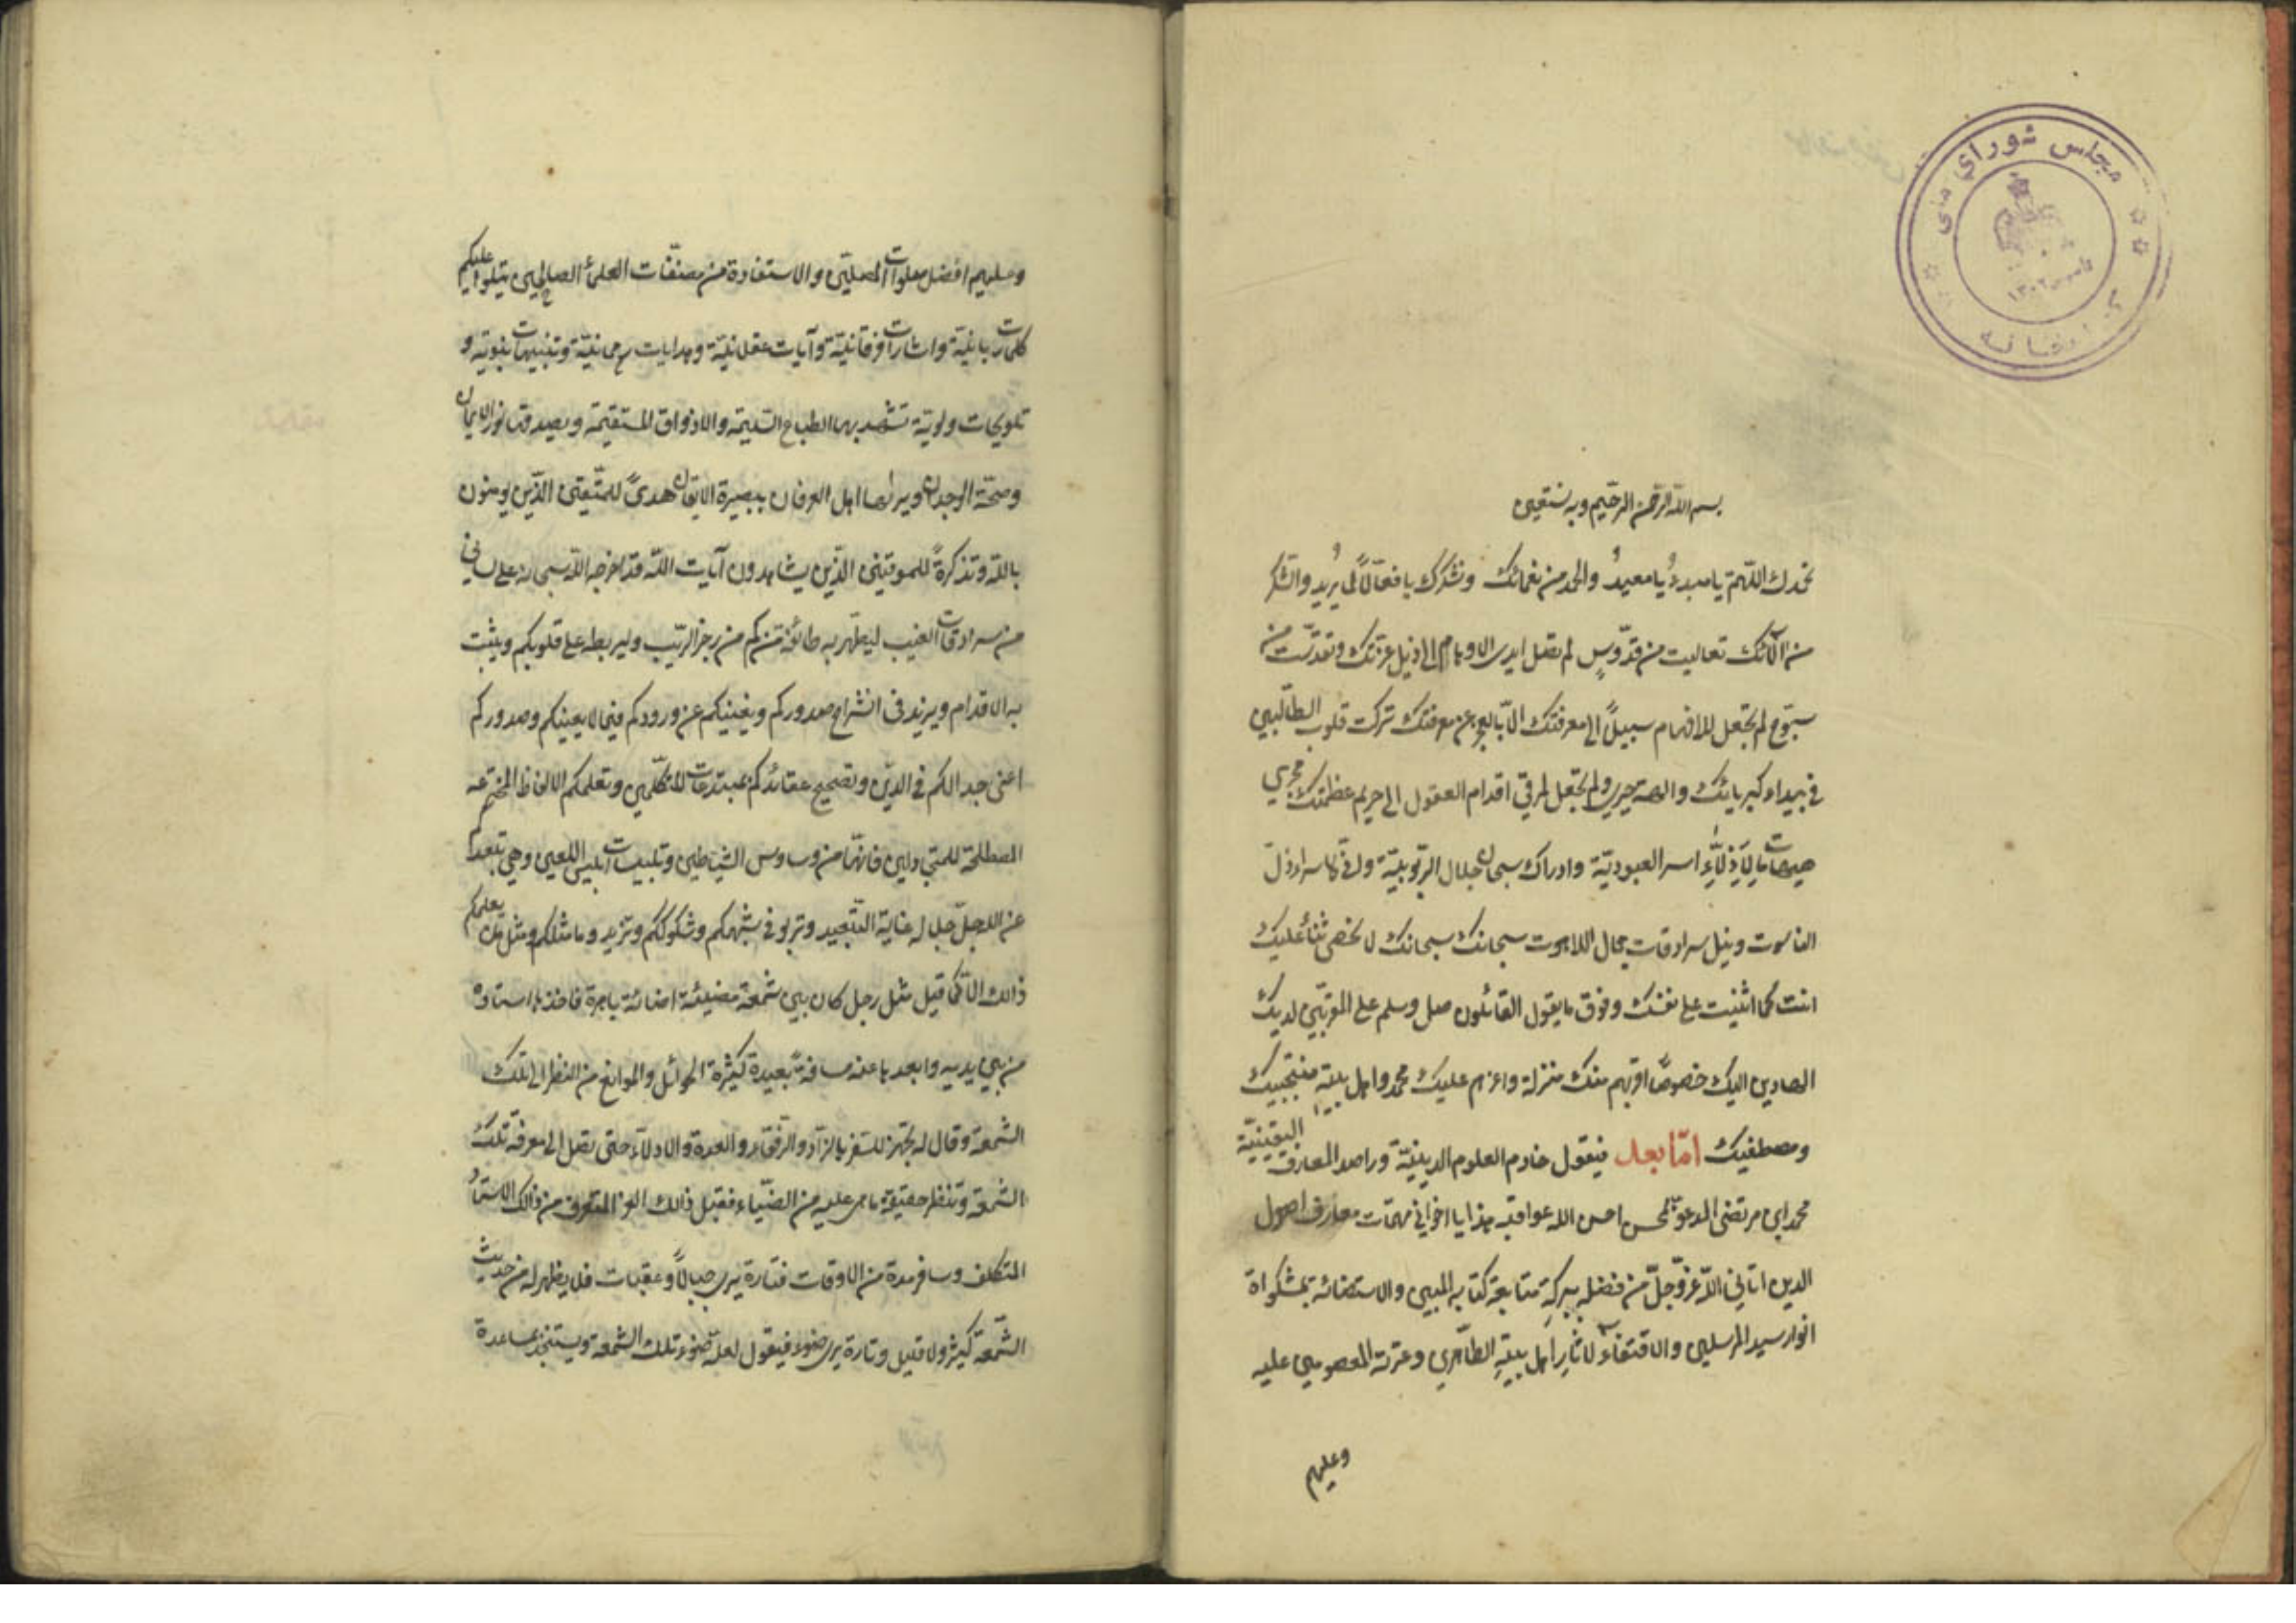 مجلس شورای ملی
کتابخانه
۱۳۰۲
بسم الله الرحمن الرحیم وبه نستعین
نحمدك اللهم یا مبدءُ یا معیدُ والحمد من نعمائك ونشکرك یا فعّالاً لما یُرید والشکر
من آلائك تعالیت من قدّوسٍ لم تصل ایدی الاوهام الی ذیل عزتك وتقدّست من
سبّوح لم تجعل للافهام سبیلاً الی معرفتك الا بالعجز عن معرفتك ترکت قلوب الطالبین
فی بیداء کبریائك والهة حیری ولم تجعل لمرقی اقدام العقول الی حریم عظمتك مجری
هیهات ما لاذلّاء اسر العبودیّة وادراك سبحات جلال الربوبیّة وانّی لاسراء ذلّ
الناسوت ونیل سرادقات جمال اللاهوت سبحانك سبحانك لا نحصی ثناءً علیك
انت کما اثنیت علی نفسك وفوق ما یقول القائلون صل وسلم علی المقربین لدیك
الهادین الیك خصوصاً اقربهم منك منزلة واکرمهم علیك محمد واهل بیته منتجبیك
ومصطفیك امّا بعد فیقول خادم العلوم الدینیّة وراصد المعارف الیقینیّة
محمد ابن مرتضی المدعوّ بمحسن احسن الله عواقبه هذا یا اخوانی مهمّات معارف اصول
الدین اتانی الله عزّ وجلّ من فضله ببرکة متابعة کتابه المبین والاستضائة بمشکواة
انوار سید المرسلین والاقتفاء لاثار اهل بیته الطّاهرین وعترته المعصومین علیه
وعلیهم
وعلیهم افضل صلوات المصلین والاستفادة من مصنّفات العلماء الصالحین یتلوا علیکم
کلمات ربانیّة واشارات فرقانیّة وآیات عقلانیّة وهدایات رحمانیّة وتنبیهات نبویّة و
تلویحات ولویّة تشهد بها الطباع السلیمة والاذواق المستقیمة ویصدقها نور الایمان
وصحّة الوجدان ویراها اهل العرفان ببصیرة الایقان هدیً للمتّقین الّذین یومنون
بالله وتذکرةً للموقنین الّذین یشاهدون آیات الله قد اخرجه الله سبحانه علی لسانی
من سرادقات الغیب لیطهّر به طائفة منکم من رجز الرّیب ولیربط علی قلوبکم ویثبت
به الاقدام ویزید فی انشراح صدورکم ویغنیکم عن ورودکم فیما لا یعینکم وصدورکم
اعنی جدالکم فی الدّین وتصحیح عقائدکم بمبتدعات المتکلّمین وتعلمکم الالفاظ المخترعة
المصطلحة للمتجادلین فانّها من وساوس الشیاطین وتلبیسات ابلیس اللعین وهی تبعدکم
عن الله جلّ جلاله غایة التبعید وتربو فی شبهکم وشکوککم وتزید وما مثلکم ومثل من یعلمکم
ذالك الا کما قیل مثل رجل کان بین شمعة مضیئة اضائة باهرة فاخذها استاده
من بین یدیه وابعدها عنه مسافة بعیدة کثیرة الحوائل والموانع من النظر الی تلك
الشمعة وقال له تجهز للسفر بالزاد والرّفقاء والعدة والادلاّء حتی تصل الی معرفة تلك
الشمعة وتنظر حقیقة ما هی علیه من الضّیاء فقبل ذالك الغر المتعرّف من ذالك الاستاد
المتکلف وسافر مدة من الاوقات فتارة یری جبالاً وعقبات فلا یظهر له من حدیث
الشّمعة کثیر ولا قلیل وتارة یری ضوء فیقول لعلّه ضوء تلك الشمعة ویستنجد بمساعدة